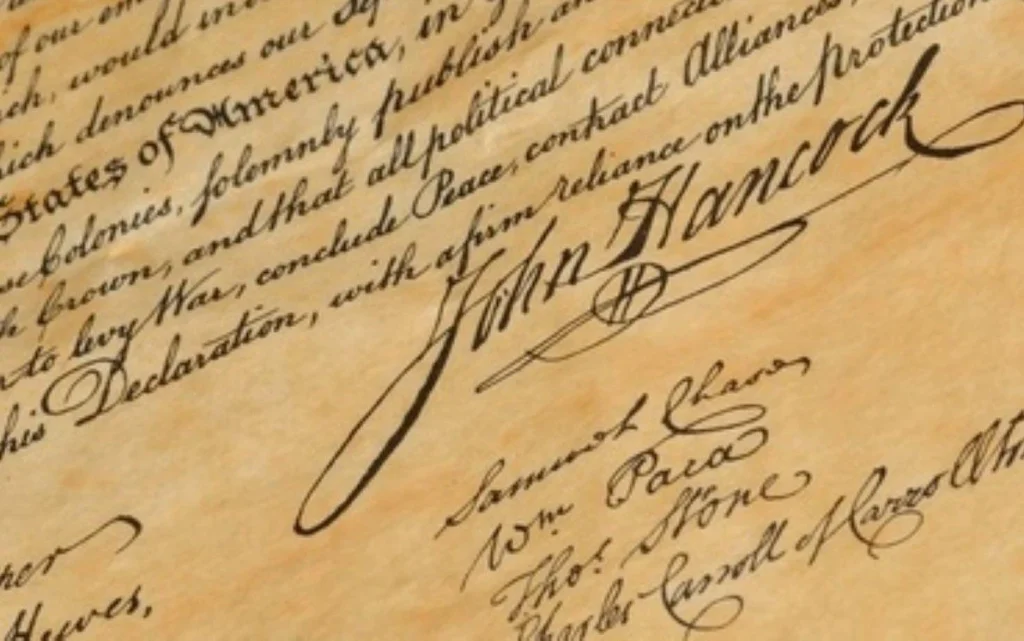 of our em
ch, would in
hich denounces our Sep
States of America, in
se Colonies, solemnly publish an
h Crown, and that all political connecti
to levy War, conclude Peace, contract Alliances,
his Declaration, with a firm reliance on the protection
John Hancock
Samuel Chase
Wm Paca
Thos. Stone
Charles Carroll of Carrollto
Hewes,